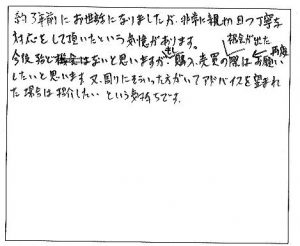 約3年前にお世話になりましたが、非常に親切且つ丁寧な
対応をして頂いたという気憶があります。
今後、機会はないと思いますが、購入、売買の際は再度お願い
したいと思います。又、周りにそういった方がいてアドバイスを望まれ
た場合は紹介したいという気持ちです。